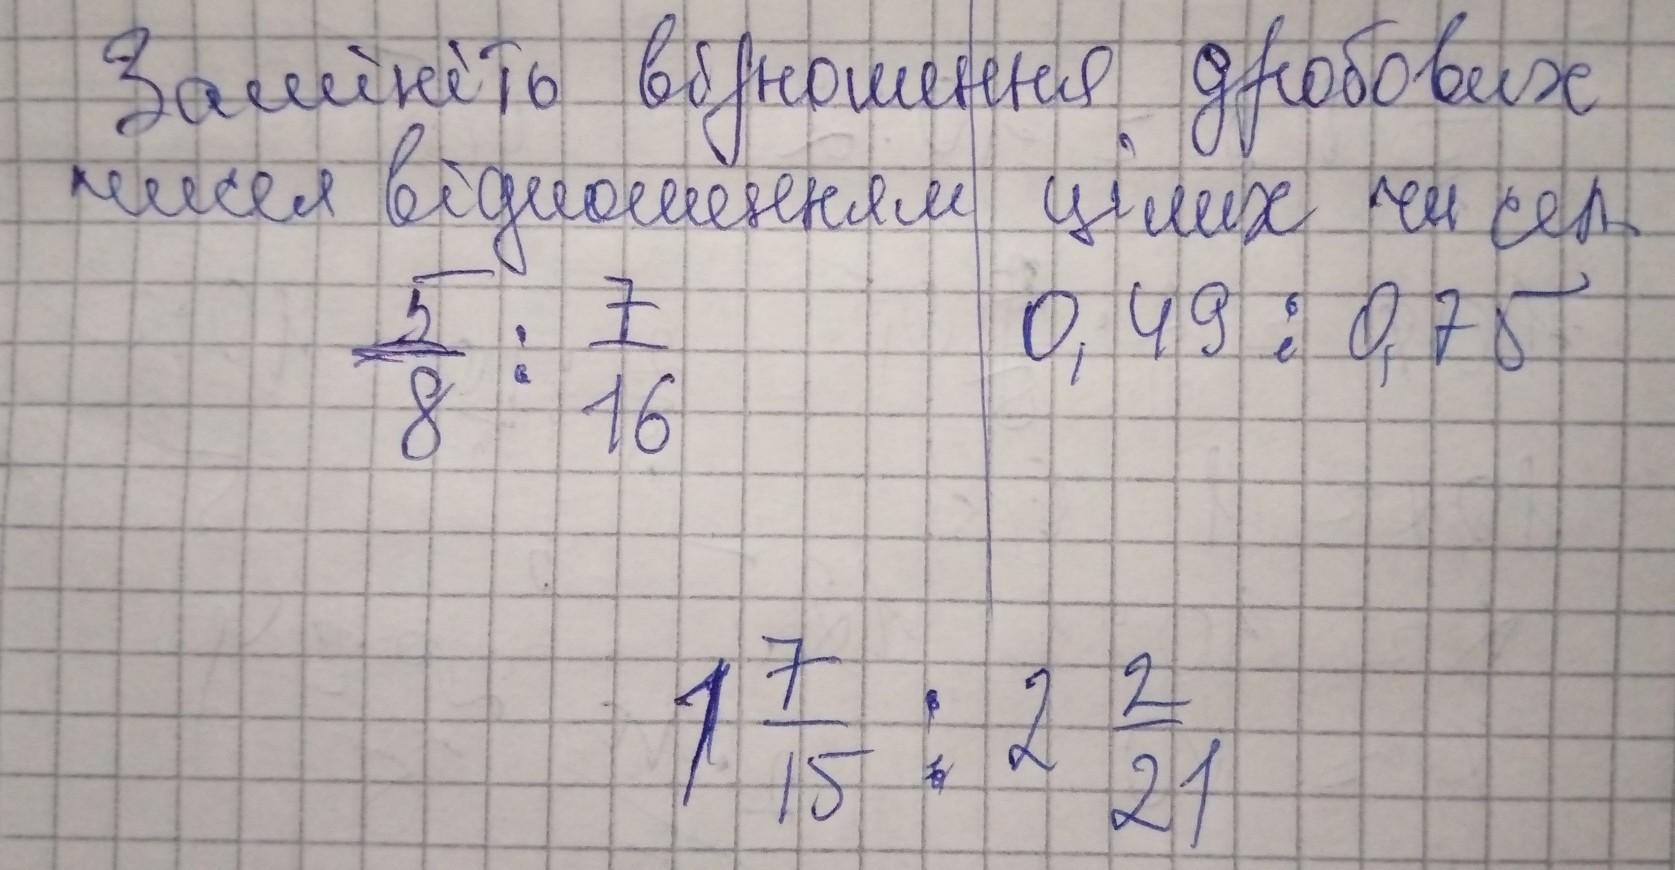 Замініть відношення дробових
чисел відношенням цілих чисел
5/8 : 7/16    0,49 : 0,75
1 7/15 : 2 2/21